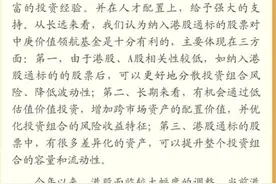 富的投资经验。并在人才配置上，给予强大的支
持。从长远来看，我们认为纳入港股通标的的股票对
中庚价值领航基金是十分有利的，主要体现在三方
面：第一、由于港股、A股相关性较低，如纳入港
股通标的的股票后，可以更好地分散投资组合风
险、降低波动性；第二、长期来看，有机会通过低
估值价值投资，增加跨市场资产的配置价值，并优
化投资组合的风险收益特征；第三、港股通标的股
票中，有很多差异化的资产，可以提升整个投资组
合的容量和流动性。
今年以来，港股面临较大幅度的调整，当前港